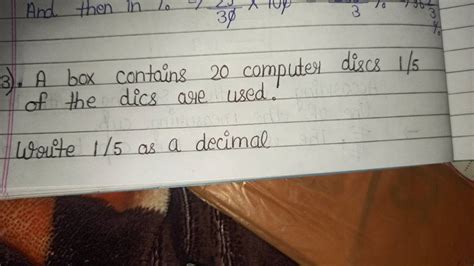 And then in % → 25/30 × 100
3). A box contains 20 computer discs 1/5
of the dics are used.
Wrute 1/5 as a decimal